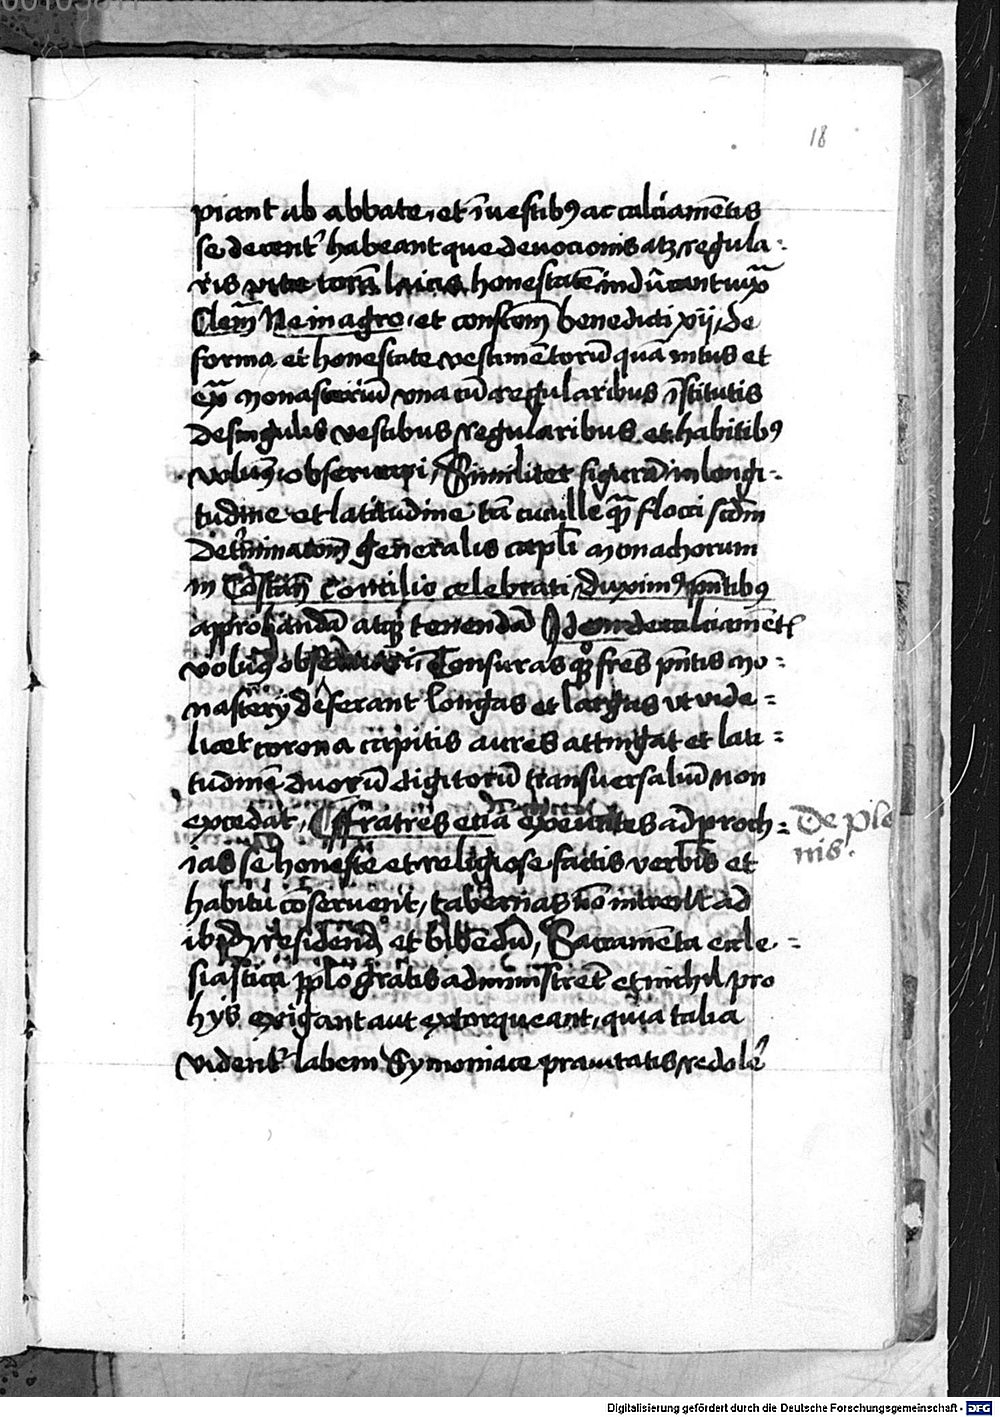 18
piant ab abbate, et ī vestib9 ac calciamētis
se decent' habeant que devocionis atq3 regula-
ris vite corā laicis honestatē inducant iuxᵃ
Clem̄ Ne in agro, et constōm benedicti xij, de
forma et honestate vestimētorū quā intus et
exᵃ monasteriū vna cū regularibus īstitutis
de singulis vestibus regularibus et habitib9
volum9 observari, Similiter figurā in longi-
tudine et latitudine tā cuculle qᵃ flocci scdm
determinatōm generalis capl'i monachorum
in Cōstan̄ Concilio celebrati, duxim9 pn̄tib9
approbandā atq3 tenendā Idem de calciamēt
volum9 observari, Tonsuras qᵒ3 fres pn̄tis mo-
nasterij deferant longas et largas vt vide-
licet corona capitis aures attingat et lati-
tudinē duorū digitorū transuersaliū non
excedat, Fratres etiā exeuntes ad proch-
ias se honeste et religiose factis verbis et
habitu cōseruent, tabernas nō intrent ad
ibid3 residend3 et bibendū, Sacramēta eccle-
siastica pplo gratis administrēt et nichil pro
hys exigant aut extorqueant, quia talia
vident' labem Symoniace prauitatis redolē'
De ple
nis.
Digitalisierung gefördert durch die Deutsche Forschungsgemeinschaft - DFG